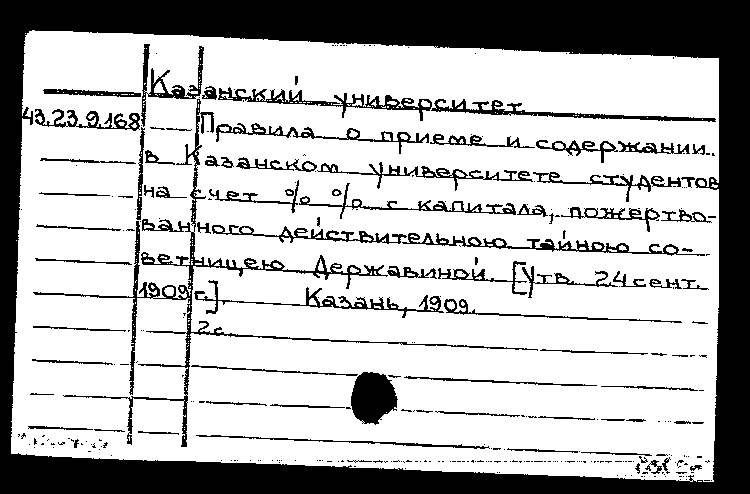 Казанский университет.
43.23.9.168 Правила о приеме и содержании
в Казанском университете студентов
на счет %% с капитала, пожертво-
ванного действительною тайною со-
ветницею Державиной. [Утв. 24 сент.
1909 г.]. Казань, 1909.
2 с.